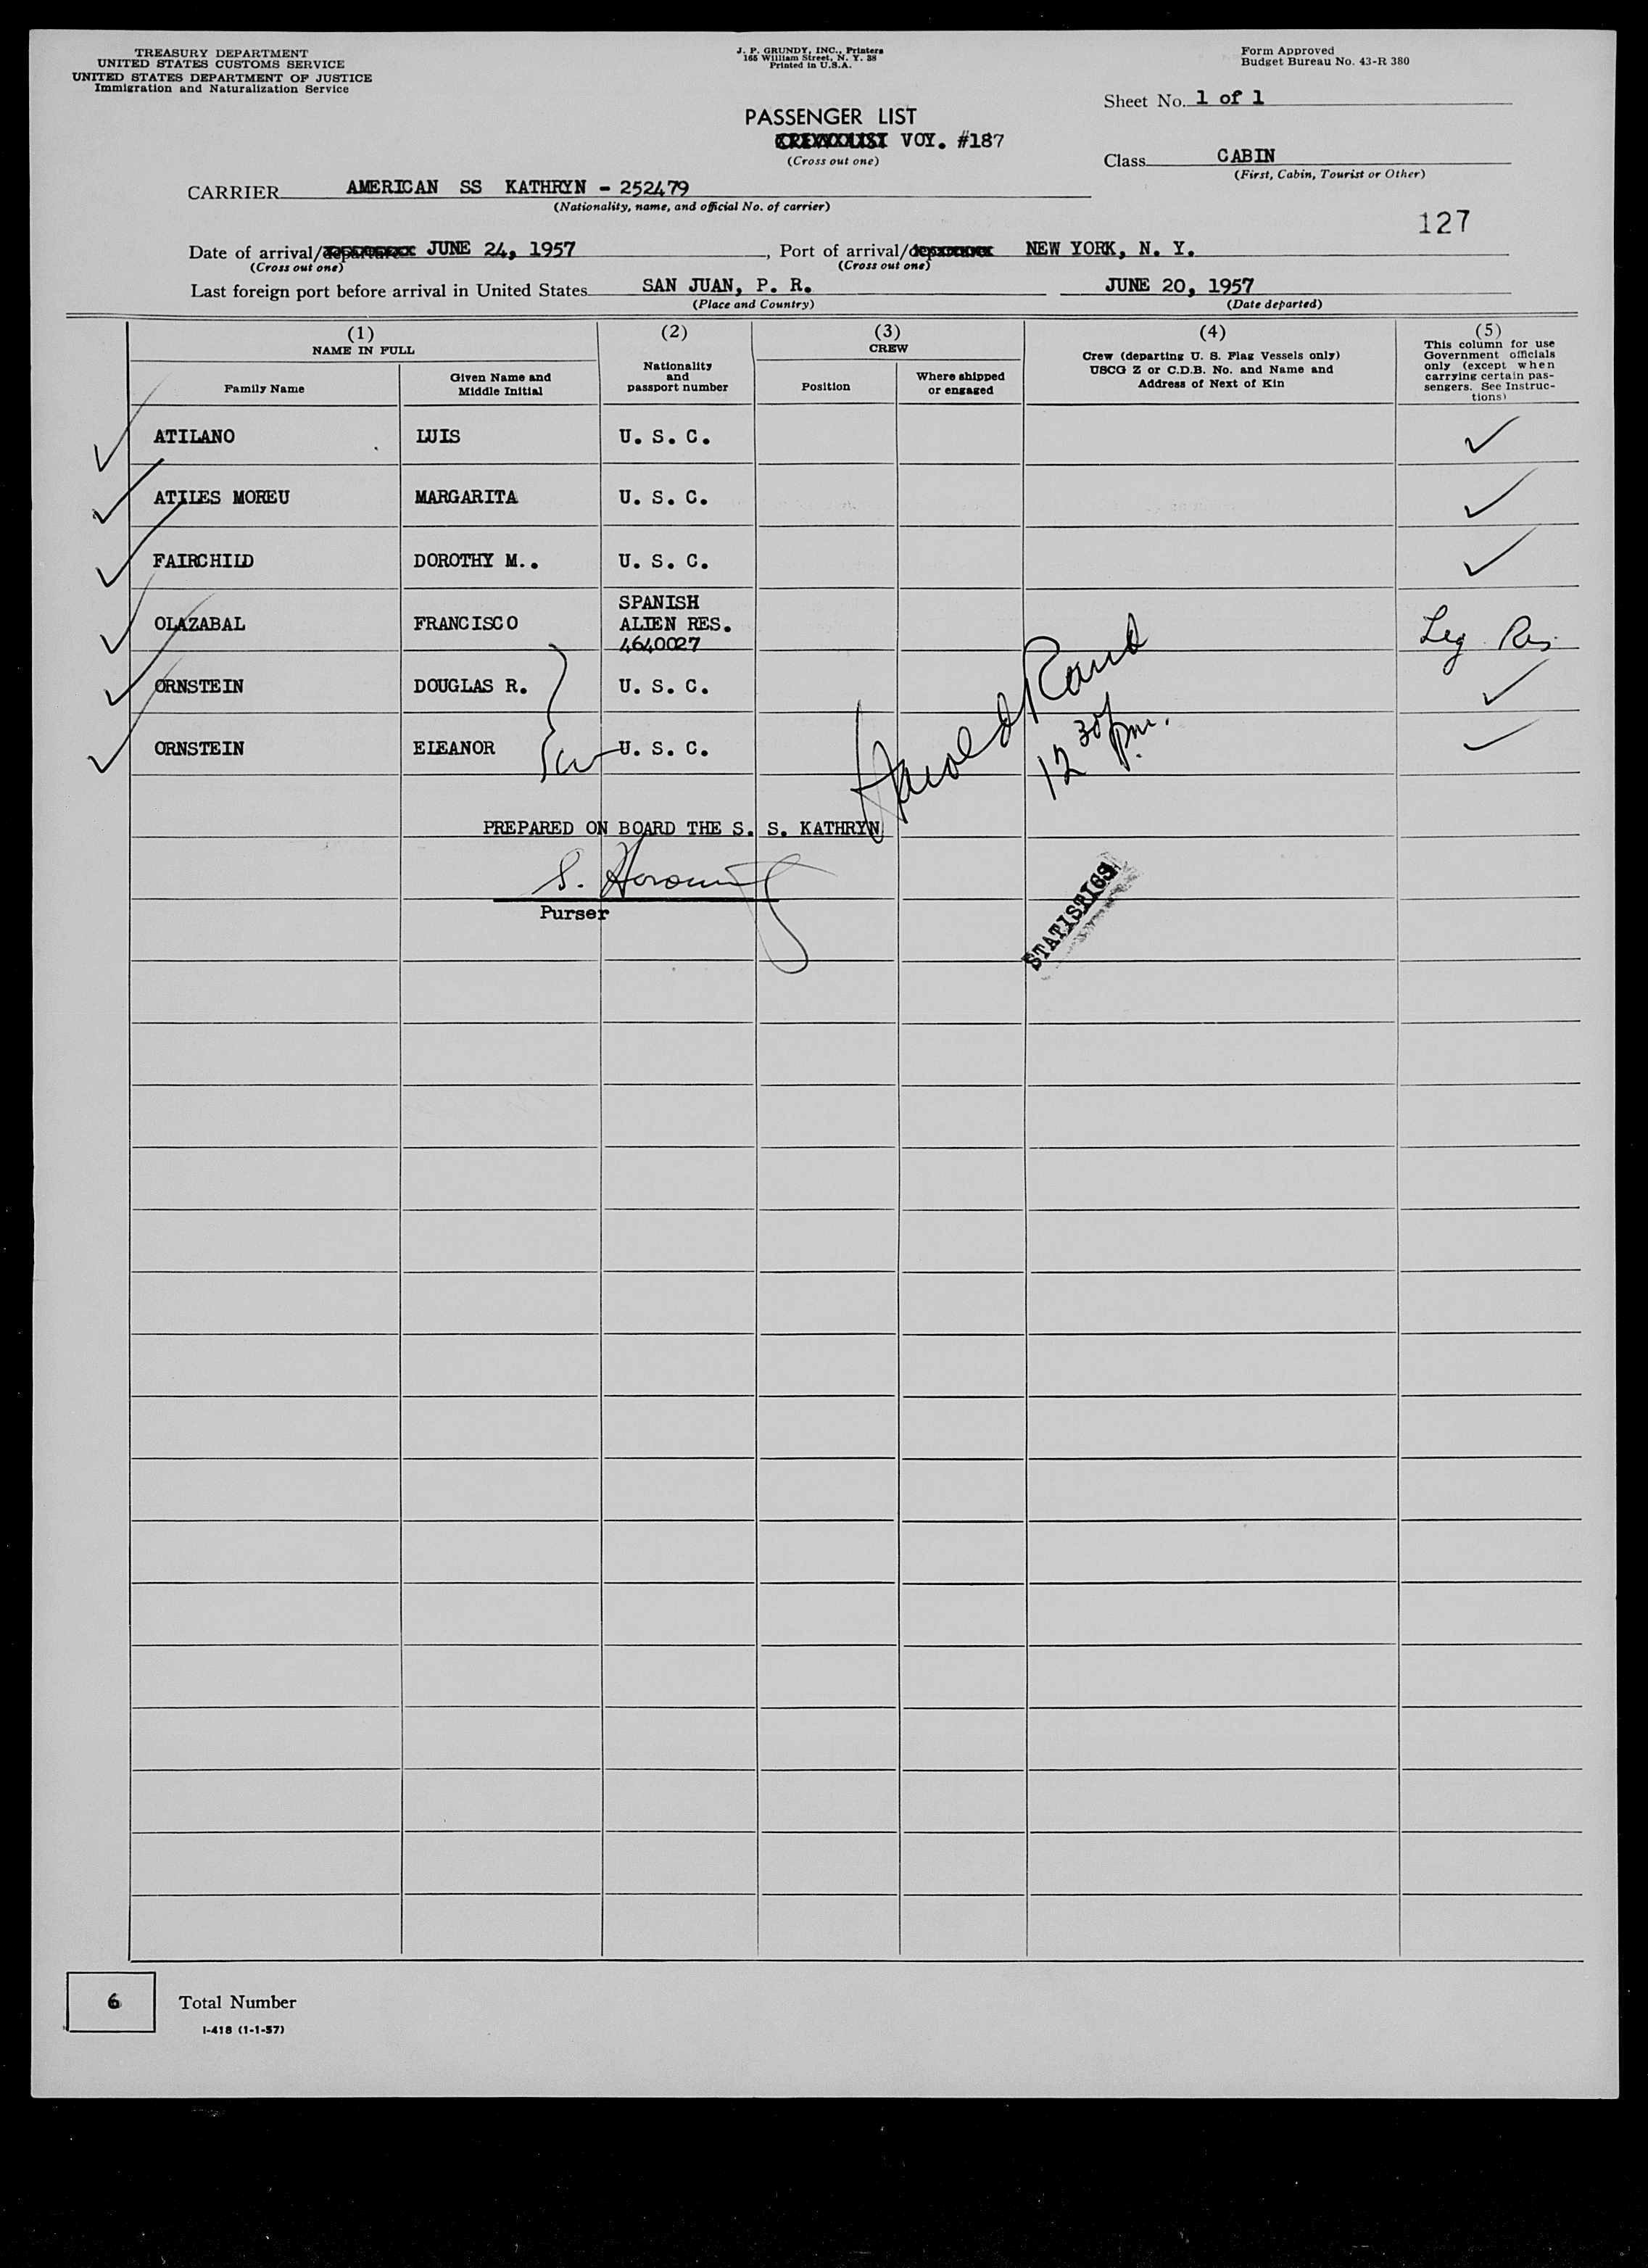 TREASURY DEPARTMENT
UNITED STATES CUSTOMS SERVICE
UNITED STATES DEPARTMENT OF JUSTICE
Immigration and Naturalization Service
J. P. GRUNDY, INC., Printers
165 William Street, N. Y. 38
Printed in U.S.A.
Form Approved
Budget Bureau No. 43-R 380
Sheet No. 1 of 1
PASSENGER LIST
VOY. #187
(Cross out one)
Class CABIN
(First, Cabin, Tourist or Other)
CARRIER AMERICAN SS KATHRYN - 252479
(Nationality, name, and official No. of carrier)
127
Date of arrival/departure JUNE 24, 1957, Port of arrival/departure NEW YORK, N. Y.
(Cross out one) (Cross out one)
Last foreign port before arrival in United States SAN JUAN, P. R. JUNE 20, 1957
(Place and Country) (Date departed)
(1) (2) (3) (4) (5)
NAME IN FULL
Family Name
Given Name and
Middle Initial
Nationality
and
passport number
CREW
Position
Where shipped
or engaged
Crew (departing U. S. Flag Vessels only)
USCG Z or C.D.B. No. and Name and
Address of Next of Kin
This column for use
Government officials
only (except when
carrying certain pas-
sengers. See Instruc-
tions)
ATILANO LUIS U. S. C.
ATILES MOREU MARGARITA U. S. C.
FAIRCHILD DOROTHY M.. U. S. C.
SPANISH
OLAZABAL FRANCISCO ALIEN RES. Leg Res
4640027
ORNSTEIN DOUGLAS R. U. S. C.
ORNSTEIN ELEANOR U. S. C.
Harold Rand
12 30 pm.
PREPARED ON BOARD THE S. S. KATHRYN
S.
Purser
STATISTICS
6 Total Number
I-418 (1-1-57)